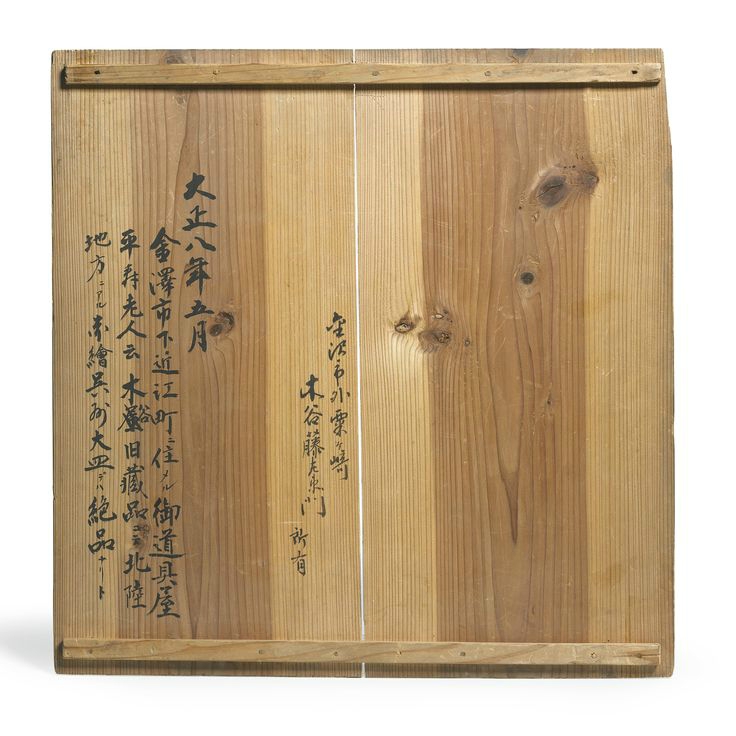 金沢市外粟ヶ崎
木谷藤左衛門 所有
大正八年五月
金澤市下近江町ニ住メル御道具屋
平寿老人云 木谷屋旧藏品ニシテ北陸
地方ニアル赤繪呉州大皿デハ絶品ナリト